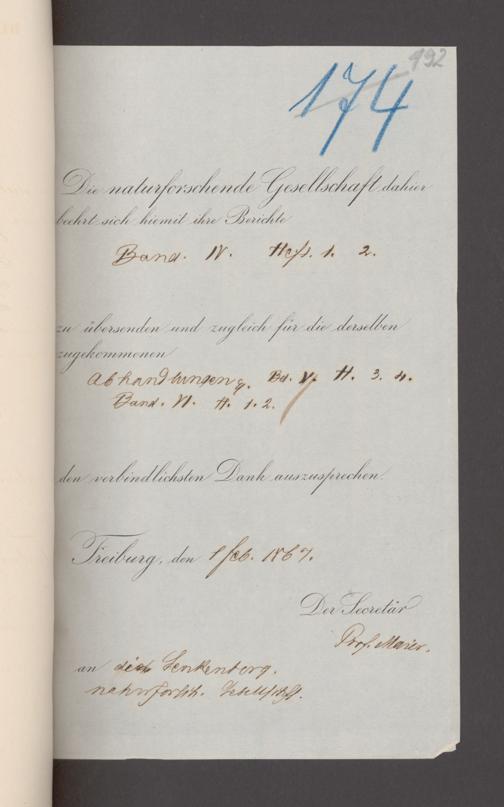 192
174
Die naturforschende Gesellschaft dahier
beehrt sich hiemit ihre Berichte
Band. IV. Heft. 1. 2.
zu übersenden und zugleich für die derselben
zugekommenen
Abhandlungen, Bd. V. H. 3. 4.
Band. VI. H. 1. 2.
den verbindlichsten Dank auszusprechen.
Freiburg, den 1 Feb. 1867.
Der Secretär
Prof. Maier.
an die Senkenberg.
naturforsch. Gesellschft.